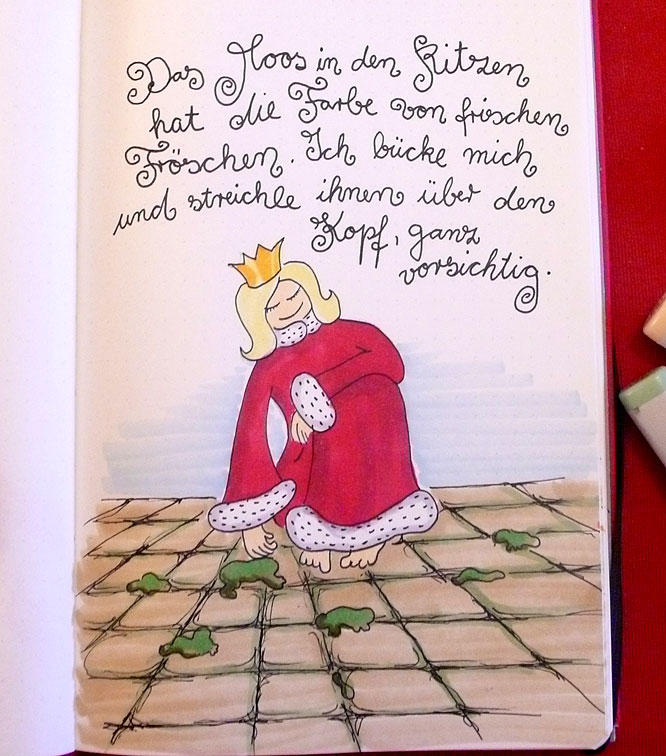 Das Moos in den Ritzen
hat die Farbe von frischen
Fröschen. Ich bücke mich
und streichle ihnen über den
Kopf, ganz
vorsichtig.